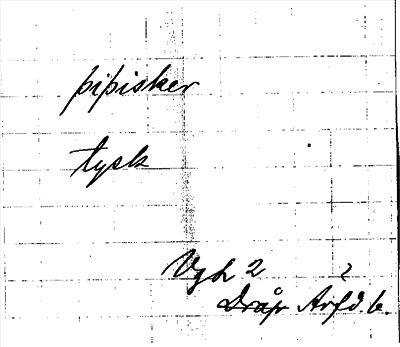 þiþisker
tysk
Vgh 2 2
Dråp Arfd. b.